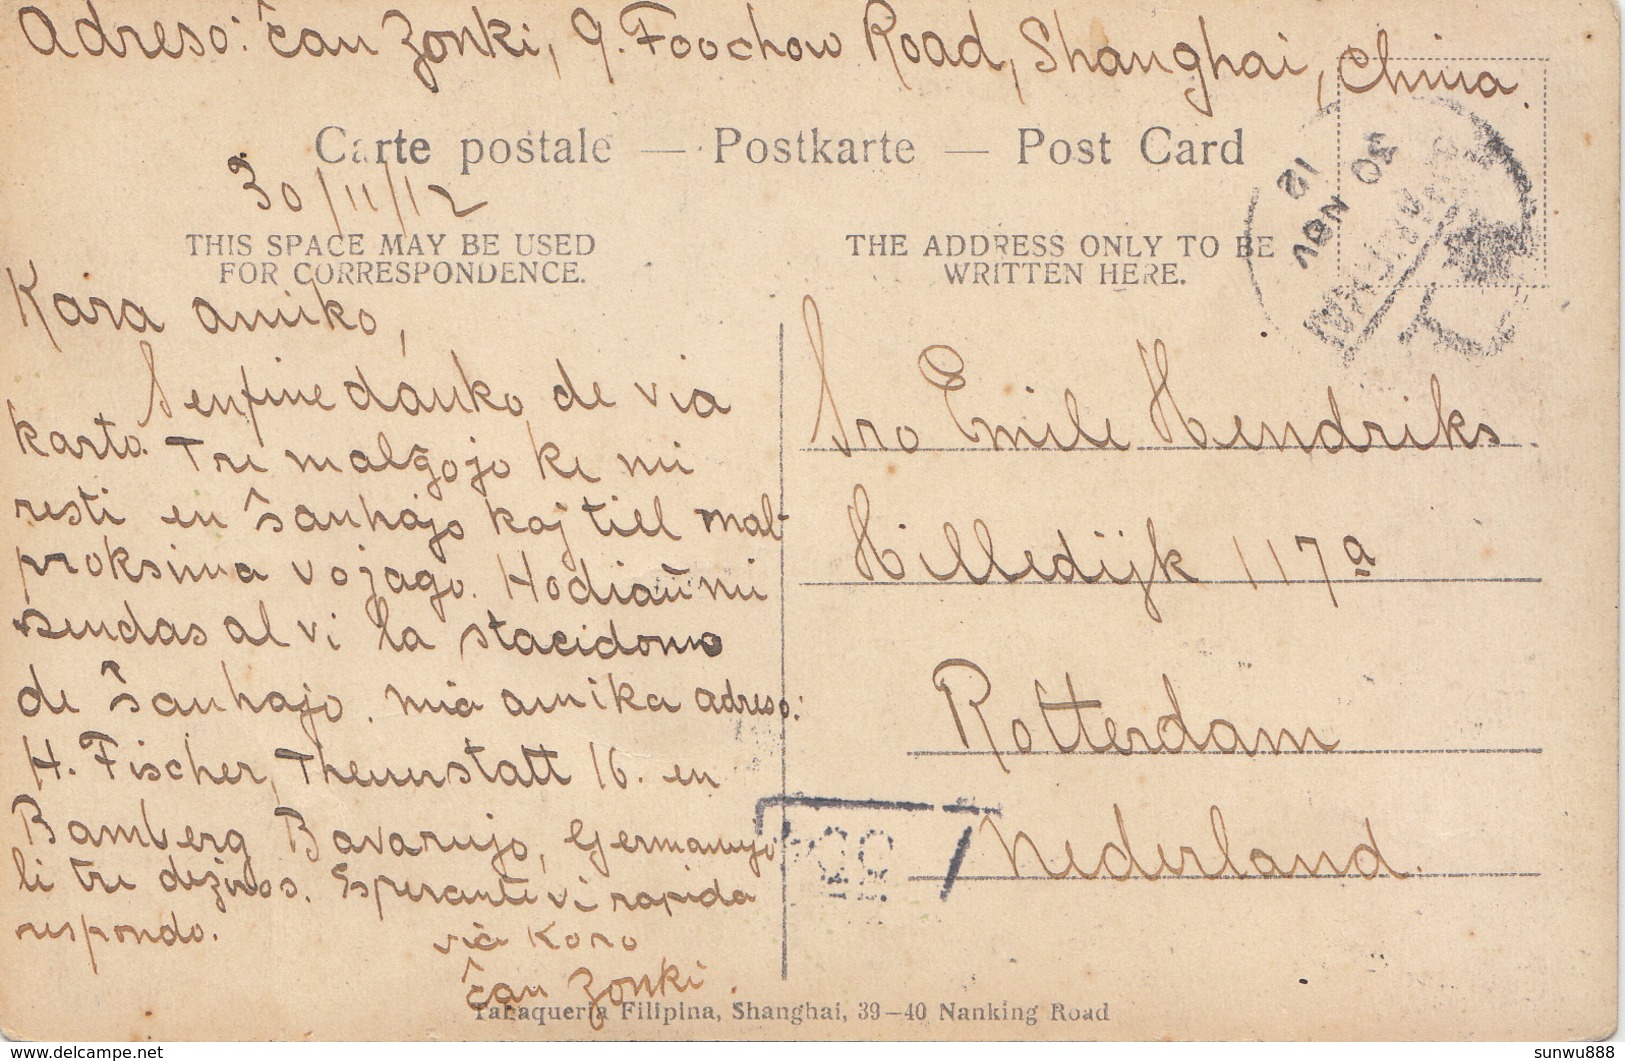 Adreso: Ĉau Zonki, 9. Foochow Road, Shanghai, China.
Carte postale — Postkarte — Post Card
30/11/12
THIS SPACE MAY BE USED
FOR CORRESPONDENCE.
Kara amiko,
Senfine danko de via
karto. Tre malĝojo ke mi
resti en Ŝanhajo kaj tiel mal-
proksima vojago. Hodiaŭ mi
sendas al vi la stacidomo
de Ŝanhajo. mia amika adreso:
H. Fischer, Theuerstatt 16. en
Bamberg Bavarujo, Germanujo
li tre deziros. Esperante vi rapida
respondo.
via Koro
Ĉau Zonki.
THE ADDRESS ONLY TO BE
WRITTEN HERE.
30 NOV 12
Sro Emile Hendriks
Hilledijk 117a
Rotterdam
Nederland.
Tabaqueria Filipina, Shanghai, 39–40 Nanking Road
https://www.delcampe.net
sunwu888